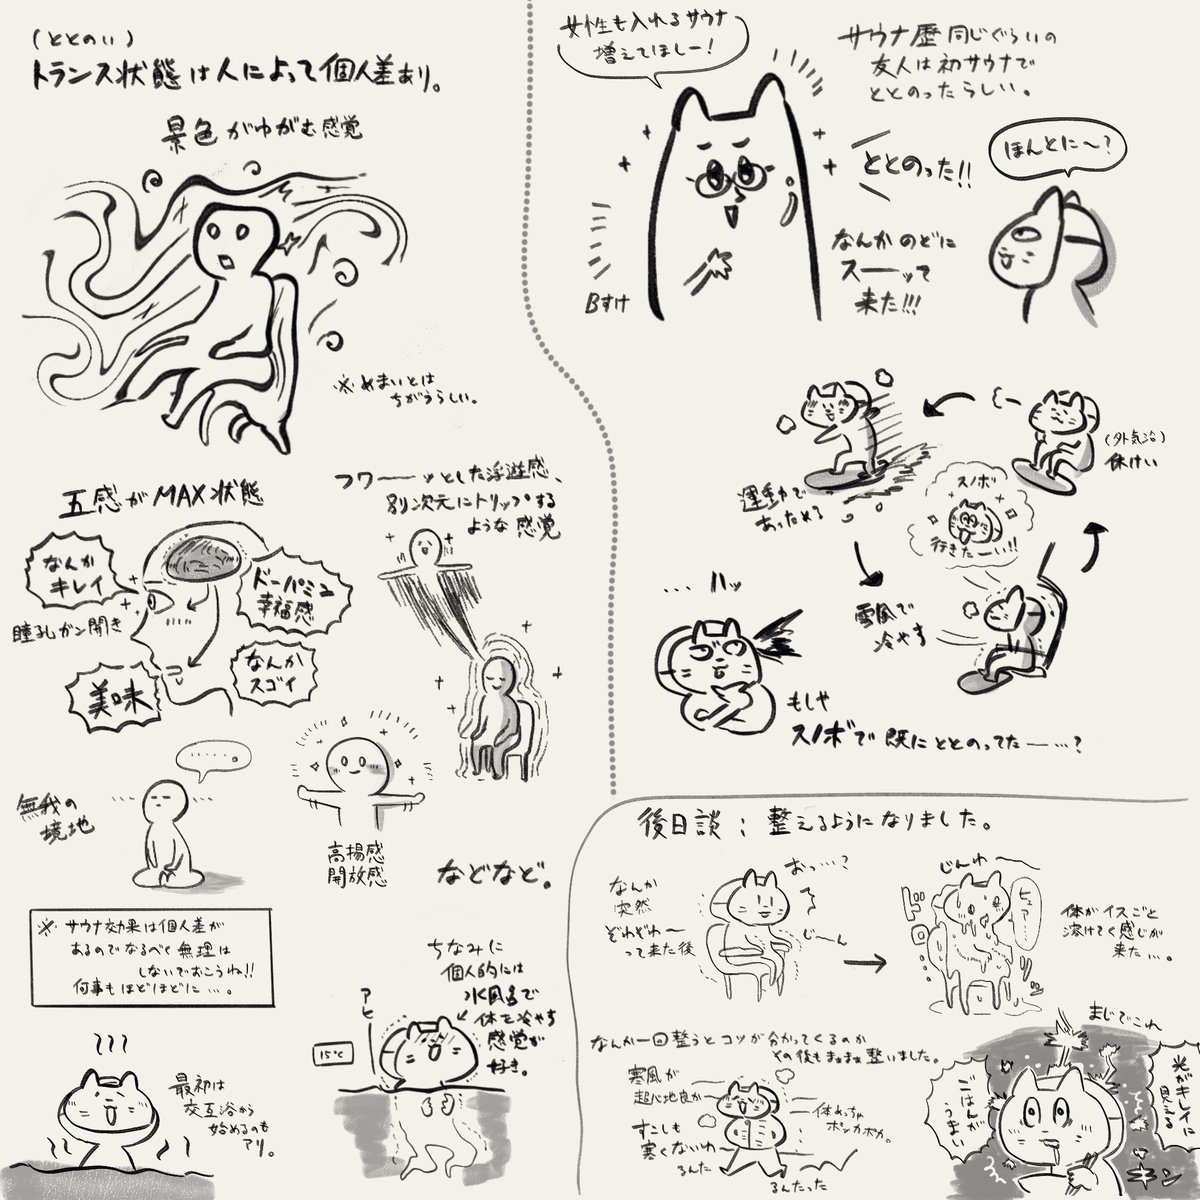 (ととのい)
トランス状態は人によって個人差あり。
景色がゆがむ感覚
※めまいとは
ちがうらしい。
五感がMAX状態
なんか
キレイ
瞳孔ガン開き
美味
ドーパミン
幸福感
なんか
スゴイ
フワーーッとした浮遊感、
別次元にトリップする
ような感覚
無我の
境地
・・・・・。
高揚感
開放感
などなど。
※サウナ効果は個人差が
あるのでなるべく無理は
しないでおこうね!!
何事もほどほどに…。
最初は
交互浴から
始めるのも
アリ。
ちなみに
個人的には
水風呂で
体を冷やす
感覚が
好き。
アヒ
15℃
女性も入れるサウナ
増えてほしー!
Bすけ
サウナ歴同じぐらいの
友人は初サウナで
ととのったらしい。
ととのった!!
なんかのどに
スーーッて
来た!!!
ほんとに〜?
(外気浴)
休けい
運動で
あっためる
雪風で
冷やす
スノボ
行きたーい!!
…ハッ
もしや
スノボで既にととのってたー…?
後日談:整えるようになりました。
なんか
突然
ぞわぞわ〜
って来た後
おっ…?
じーん
じんわ〜
体がイスごと
溶けてく感じが
来た…。
なんか一回整うとコツが分かってくるのか
その後もまぁまぁ整いました。
寒風が
超心地良か
すこしも
寒くないわ
るんた
るんたった
体めっちゃ
ポッカポカ。
まじでこれ
ごはんが
うまい
光がキレイに
見える
キン